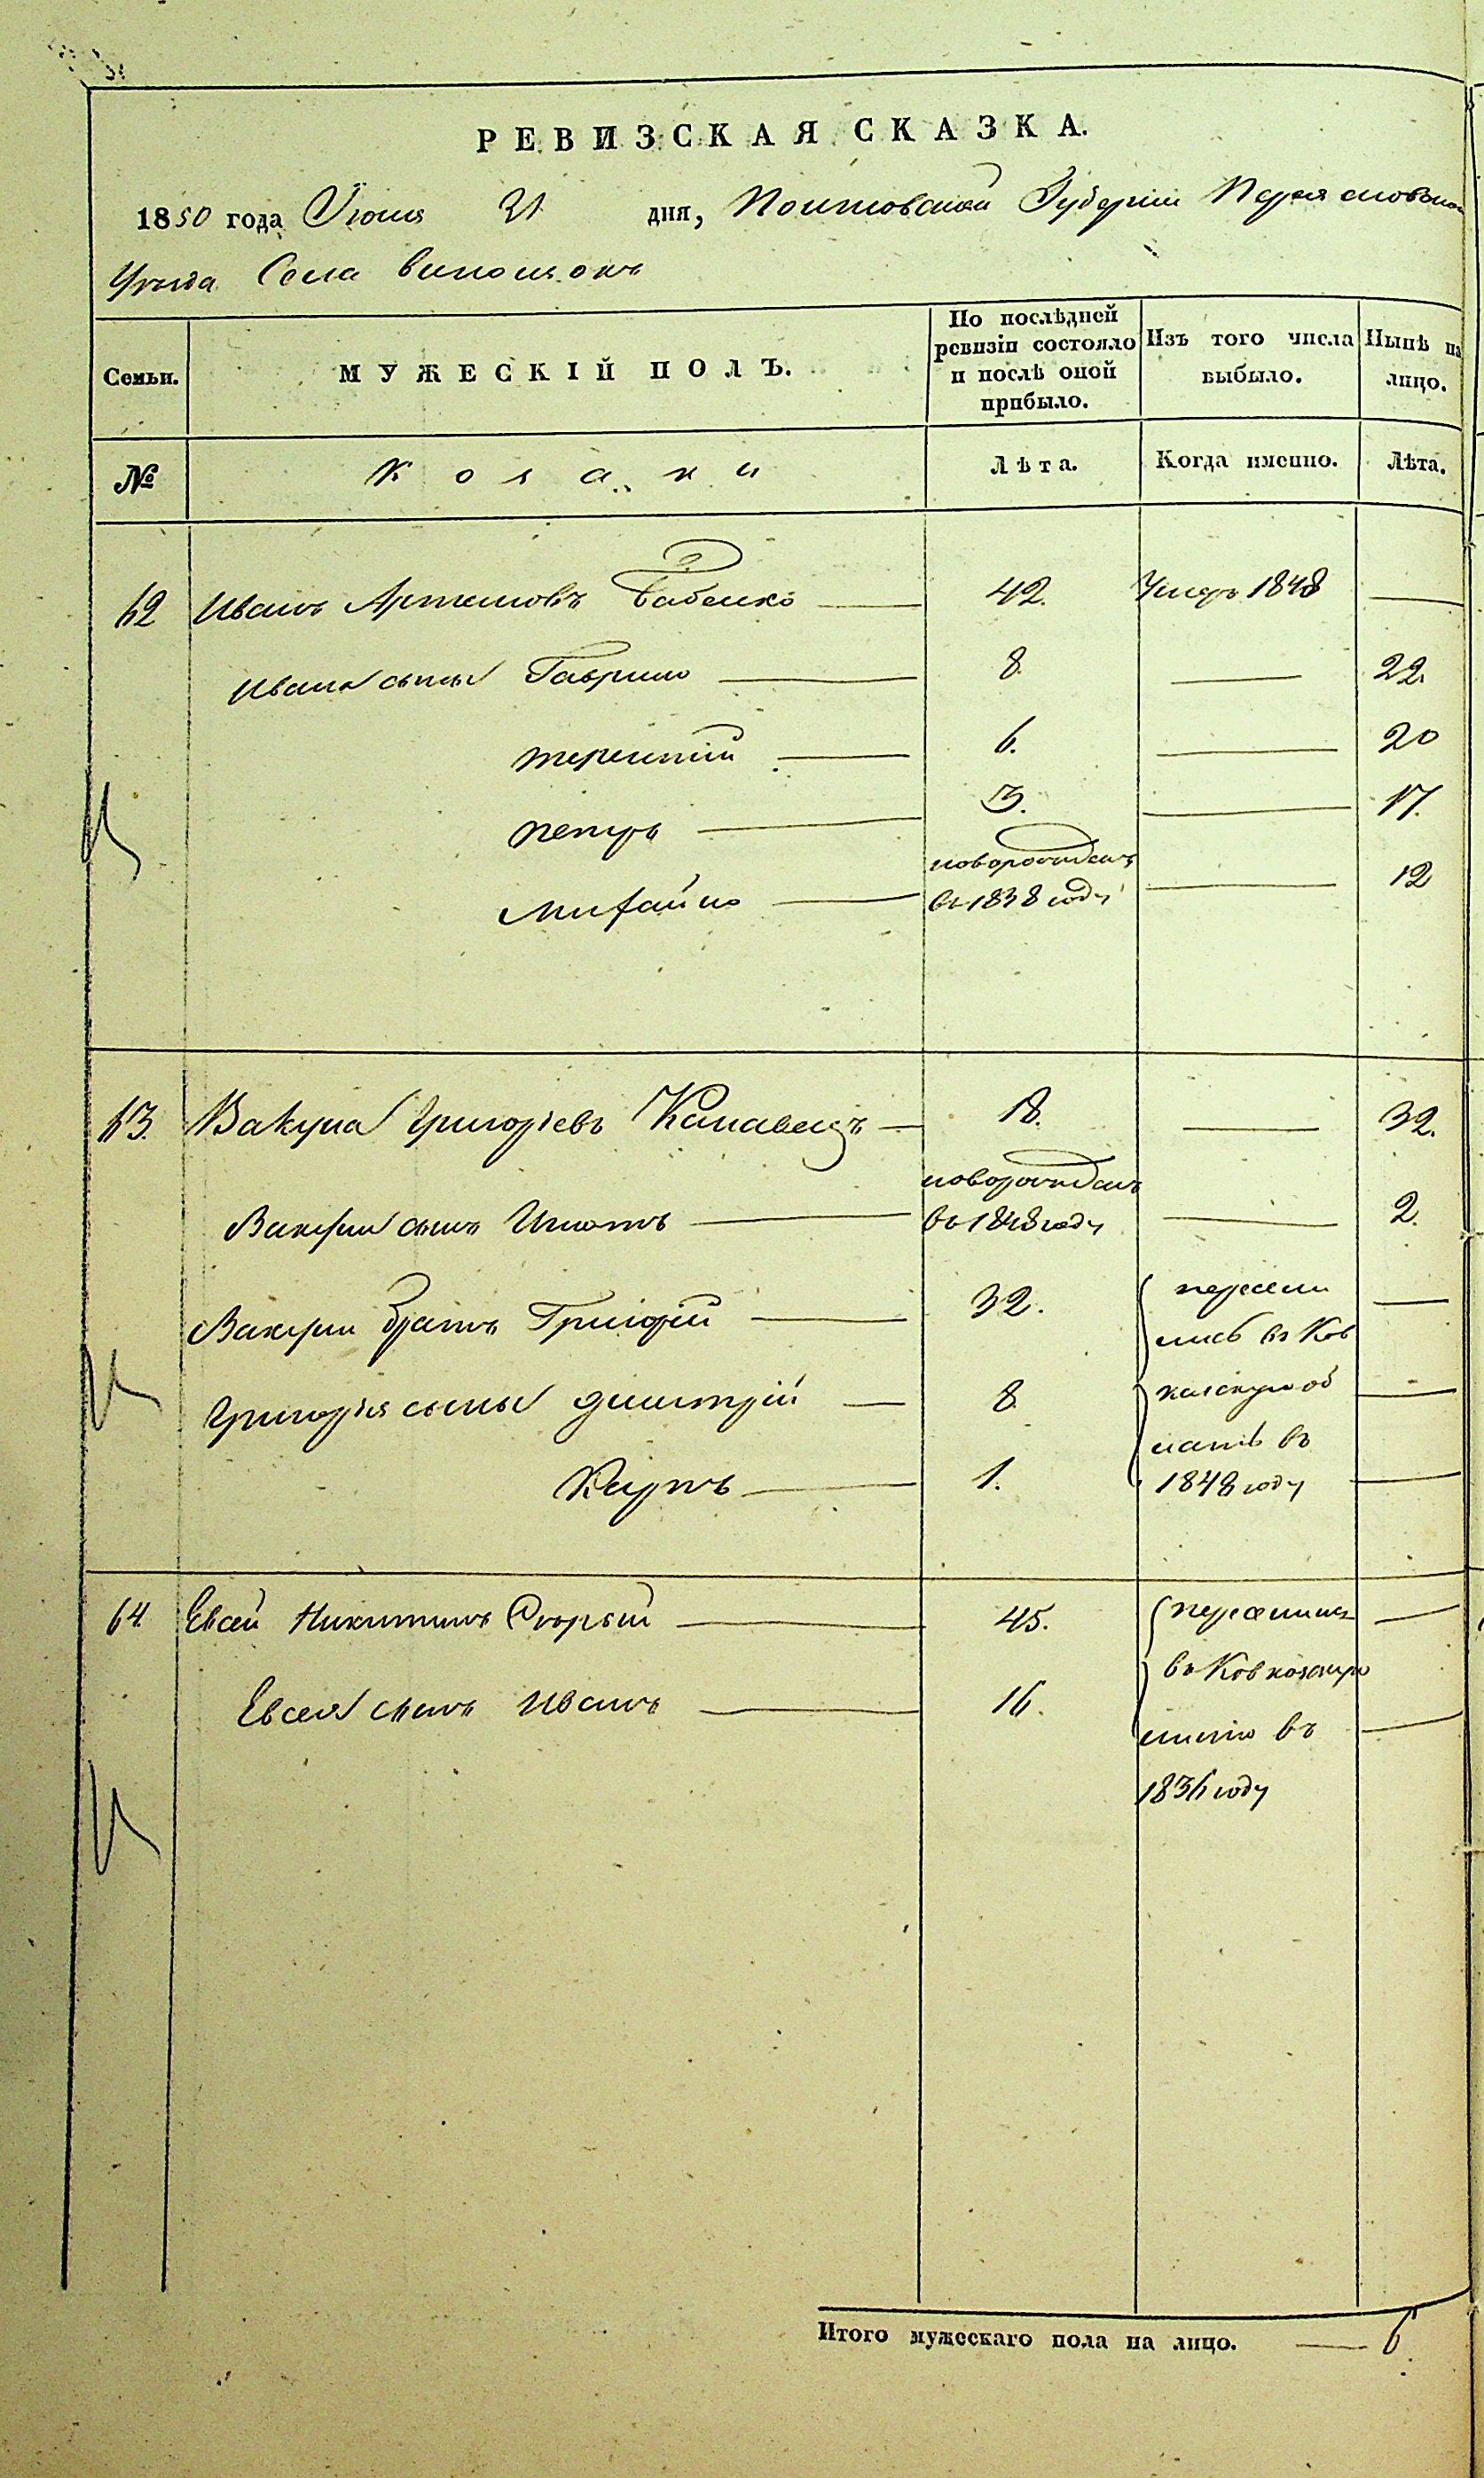 РЕВИЗСКАЯ СКАЗКА.
1850 года Іюня 21 дня, Полтовской Губерніи Переясловскаго
Уѣзда Села
Семьи. МУЖЕСКІЙ ПОЛЪ. По послѣдней ревизіи состояло и послѣ оной прибыло. Изъ того числа выбыло. Нынѣ на лицо.
№ Козаки Лѣта. Когда именно. Лѣта.
62 Иванъ Артемовъ Бабенко 42. Умеръ 1848
Ивана сыны Гаврило 8. 22.
Терентій 6. 20
Петръ 3. 17.
новорожденъ
Михайло въ 1838 году 12
63. Вакула Григорьевъ Канавецъ 18. 32.
новорожденъ
Вакулы сынъ Игнатъ въ 1848 году 2.
Вакулы братъ Григорій 32. пересели
лись въ Кав
Григорія сыны Дмитрій 8 казскую об
ласть въ
Карпъ 1. 1848 году
64. Евсей Никитинъ Скорый 45. переселились
въ Кавказскую
Евсея сынъ Иванъ 16. линію въ
1836 году
Итого мужескаго пола на лицо. 6